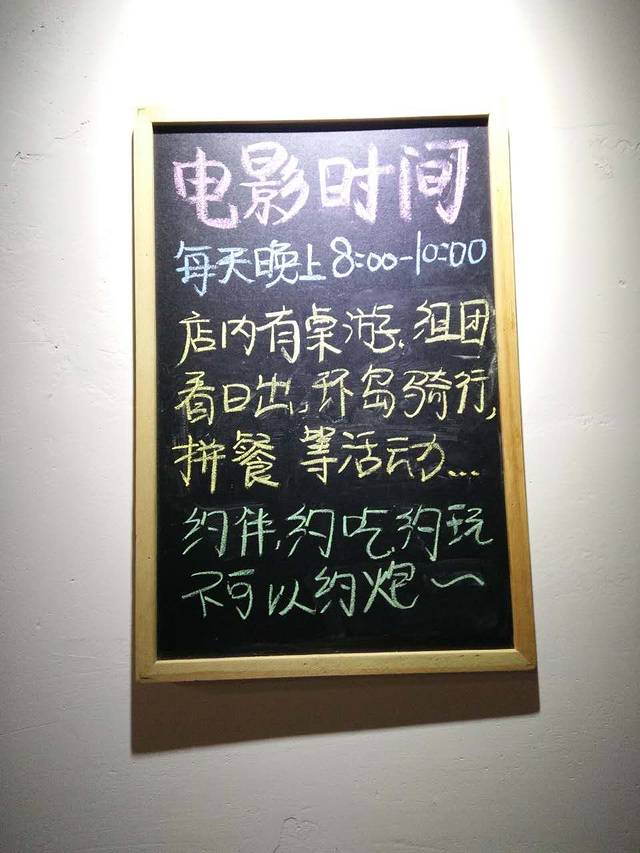 电影时间
每天晚上8:00-10:00
店内有桌游,组团
看日出,环岛骑行,
拼餐等活动...
约伴,约吃,约玩
不可以约炮~